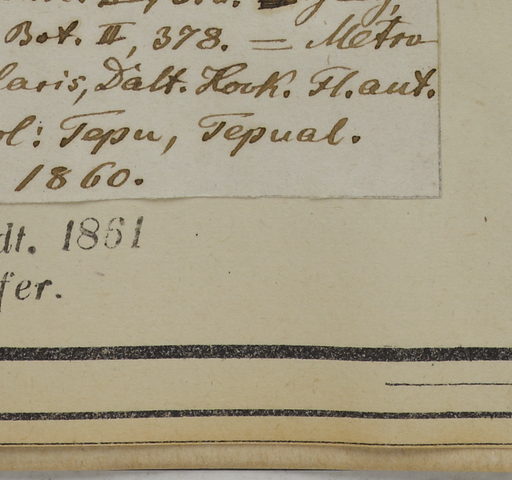 Bot. II, 378. = Metro-
laris, Dalt. Hook. Fl. ant.
ol: Tepu, Tepual.
1860.
dt. 1861
fer.